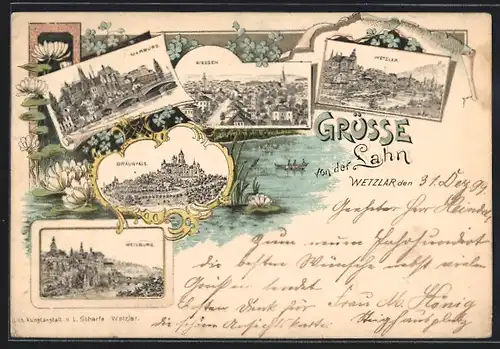 MARBURG.
GIESSEN
WETZLAR.
BRAUNFELS.
WEILBURG.
GRÜSSE
von der
Lahn
WETZLAR den 31. Dez. 99
Geehrter Herr
Zum neuen Jahrhundert
die besten Wünsche nebst vielen
Grüßen sendet
Besten Dank für Frau M. König
die schöne Ansichtskarte.
Lith. Kunstanstalt v. L. Scharfe Wetzlar.